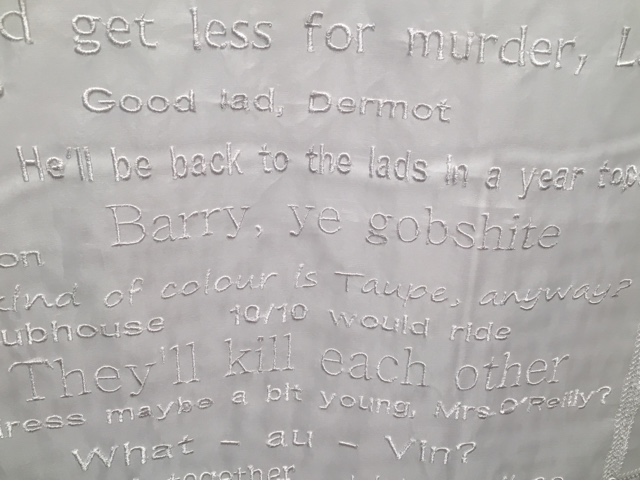 d get less for murder, L
Good lad, Dermot
He'll be back to the lads in a year
Barry, ye gobshite
on
kind of colour is Taupe, anyway?
ubhouse 10/10 would ride
They'll kill each other
ress maybe a bit young, Mrs.O'Reilly?
What - au - Vin?
together